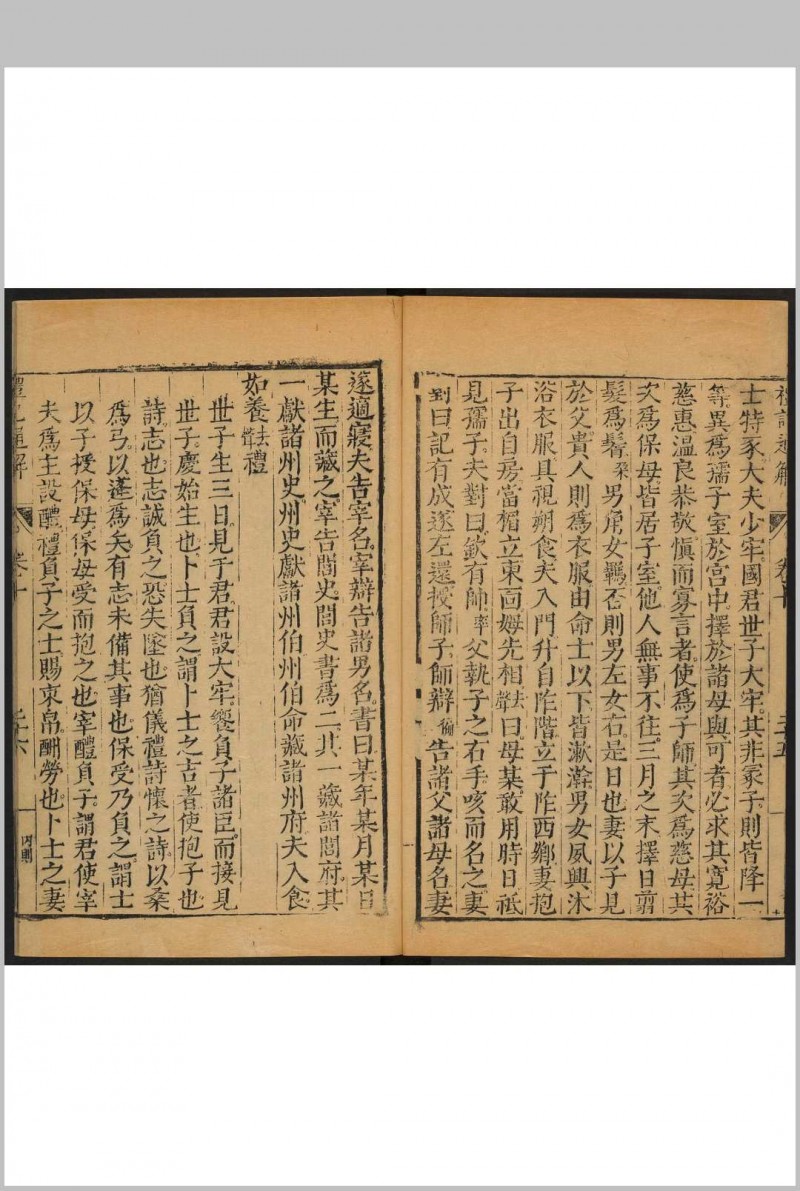 禮記通解　卷十　三十五
士特豕。大夫少牢。國君世子大牢。其非冢子。則皆降一
等。異爲孺子室於宮中。擇於諸母與可者。必求其寬裕
慈惠溫良恭敬愼而寡言者。使爲子師。其次爲慈母。其
次爲保母。皆居子室。他人無事不往。三月之末。擇日翦
髮爲鬌朶男角女羈。否則男左女右。是日也。妻以子見
於父。貴人則爲衣服。由命士以下。皆漱澣。男女夙興。沐
浴衣服。具視朔食。夫入門。升自阼階。立于阼西鄉。妻抱
子出自房。當楣立東面。姆先相去聲曰。母某敢用時日。祗
見孺子。夫對曰。欽有帥率父執子之右手。咳而名之。妻
對曰。記有成。遂左還授師子。師辯徧告諸父諸母名。妻
遂適寢。夫告宰名。宰辯告諸男名。書曰某年某月某日
某生。而藏之。宰告閭史。閭史書爲二。其一藏諸閭府。其
一獻諸州史。州史獻諸州伯。州伯命藏諸州府。夫入食
如養去聲禮
世子生三日。見于君。君設大牢。饗負子諸臣。而接見
世子。慶始生也。卜士負之。謂卜士之吉者。使抱子也
詩。志也。志誠負之。恐失墜也。猶儀禮詩懷之詩。以桑
爲弓。以蓬爲矢。有志未備其事也。保受乃負之。謂士
以子授保母。保母受而抱之也。宰醴負子。謂君使宰
夫爲主。設醴禮負子之士。賜束帛。酬勞也。卜士之妻
禮記通解　卷十　三十六　內則